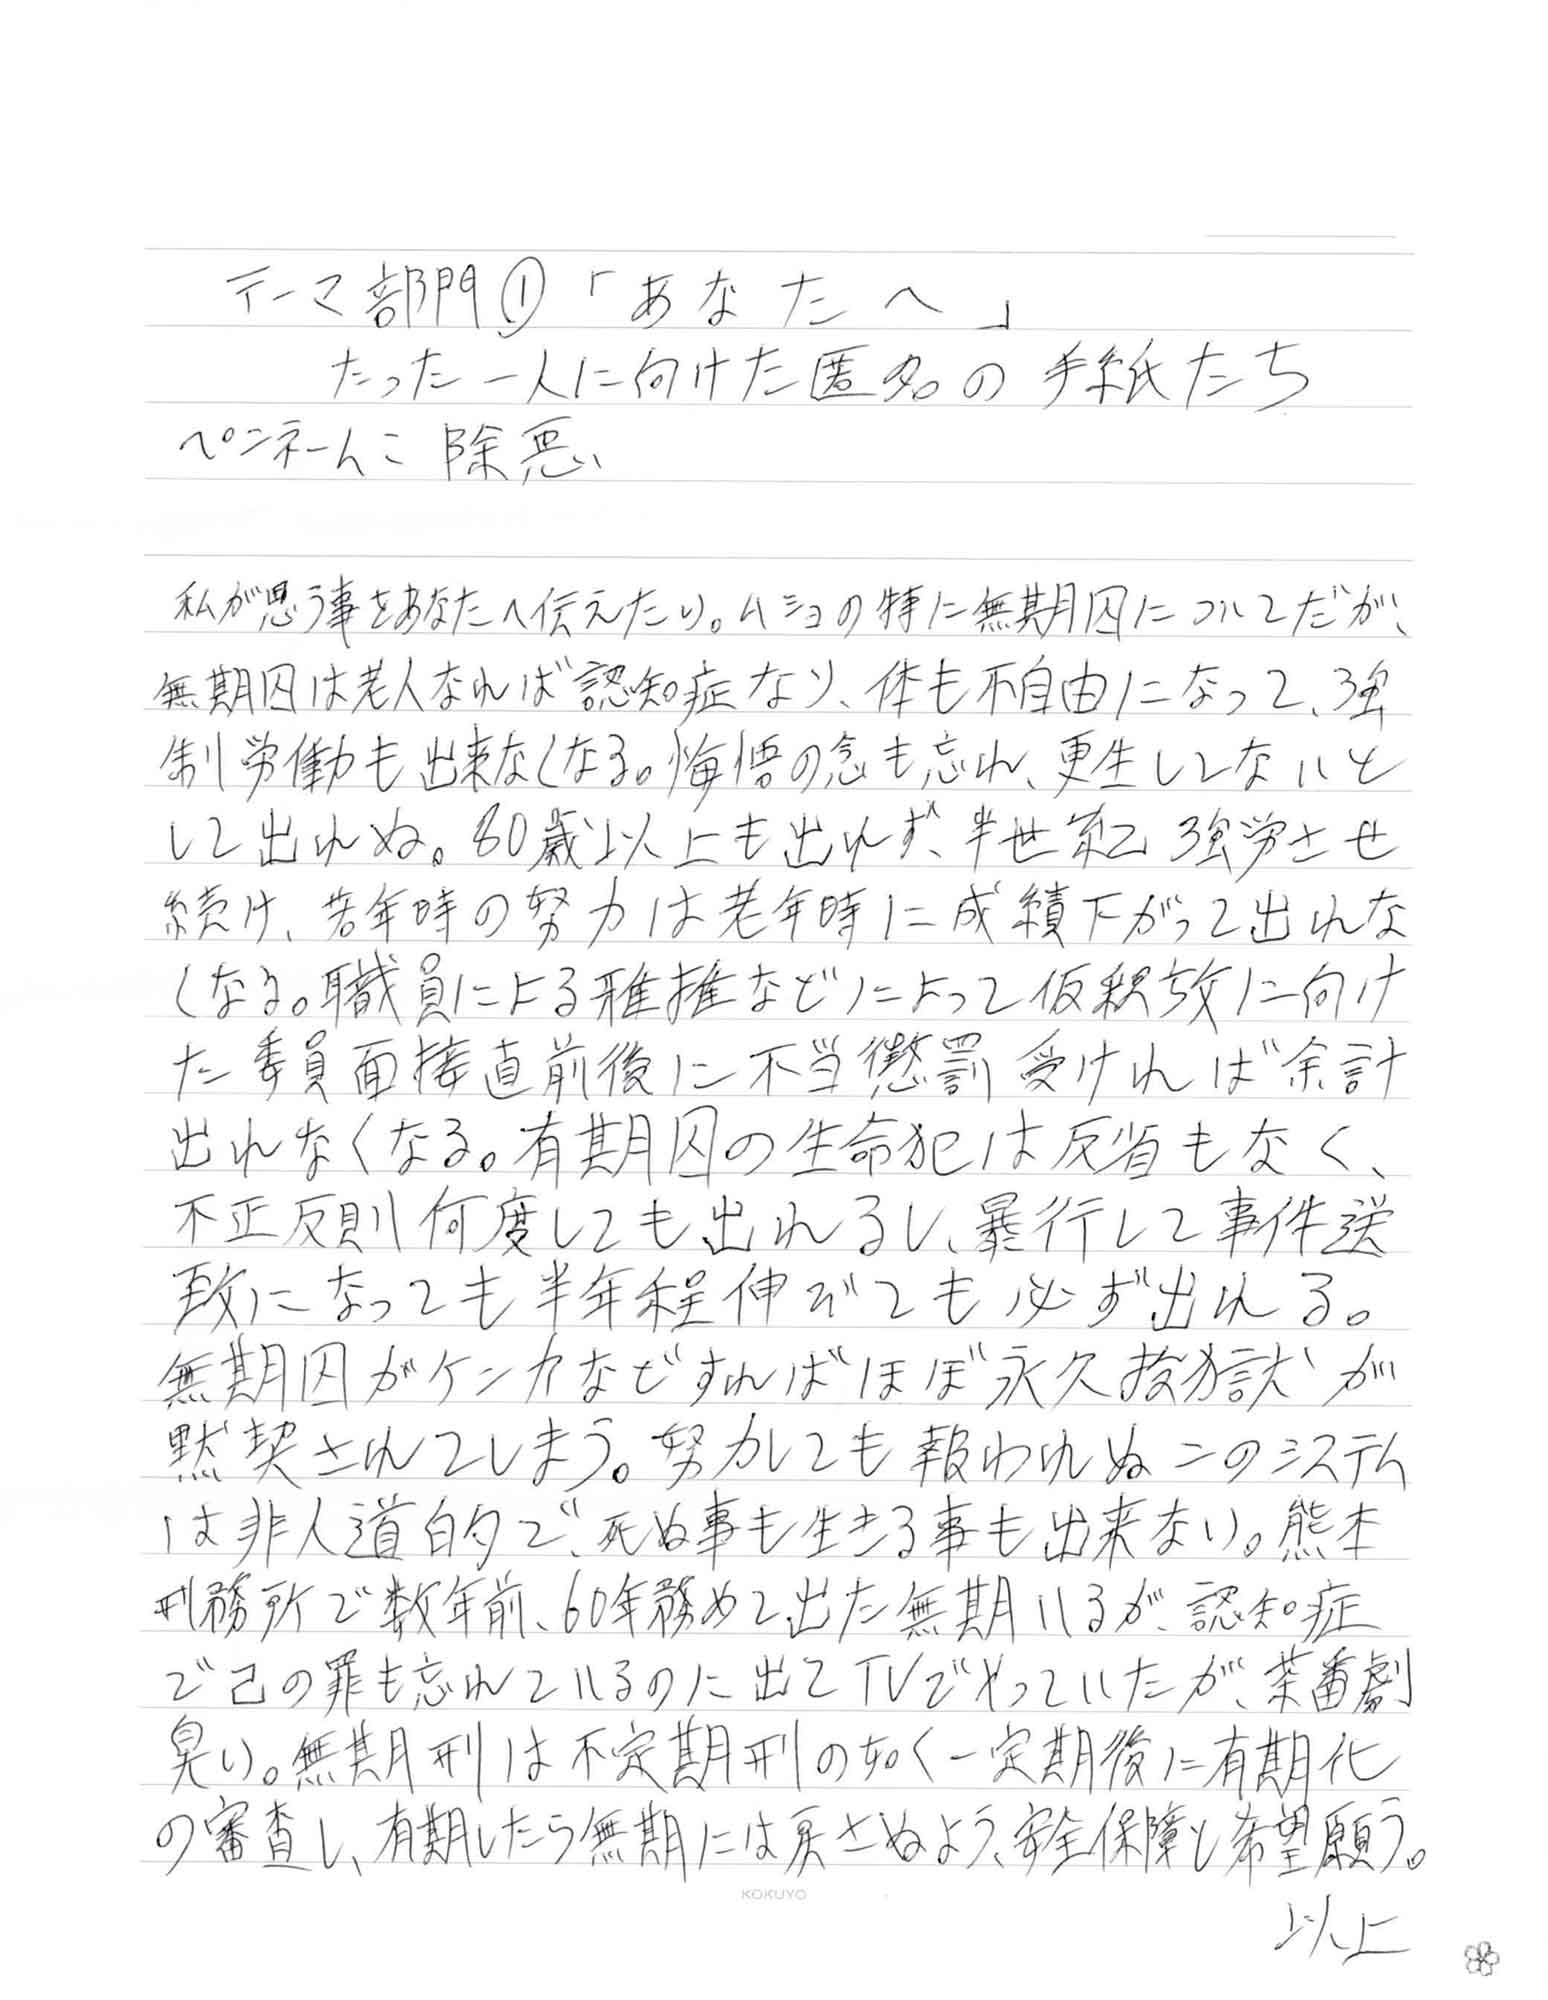 テーマ部門①「あなたへ」
たった一人に向けた匿名の手紙たち
ペンネーム 除悪
私が思う事をあなたへ伝えたい。ムショの特に無期囚についてだが、
無期囚は老人なれば認知症なり、体も不自由になって、強
制労働も出来なくなる。悔悟の念も忘れ、更生してないと
して出れぬ。80歳以上も出れず、半世紀強労させ
続け、若年時の努力は老年時に成績下がって出れな
くなる。職員による邪推などによって仮釈放に向け
た委員面接直前後に不当懲罰受ければ余計
出れなくなる。有期囚の生命犯は反省もなく、
不正反則何度しても出れるし、暴行して事件送
致になっても半年程伸びても必ず出れる。
無期囚がケンカなどすればほぼ永久獄が
黙契されてしまう。努力しても報われぬこのシステム
は非人道的で、死ぬ事も生きる事も出来ない。熊本
刑務所で数年前、60年務めて出た無期いるが、認知症
で己の罪も忘れているのに出てTVでやっていたが、茶番劇
臭い。無期刑は不定期刑の如く一定期後に有期化
の審査し、有期したら無期には戻さぬよう、安全保障し希望願う。
KOKUYO
以上